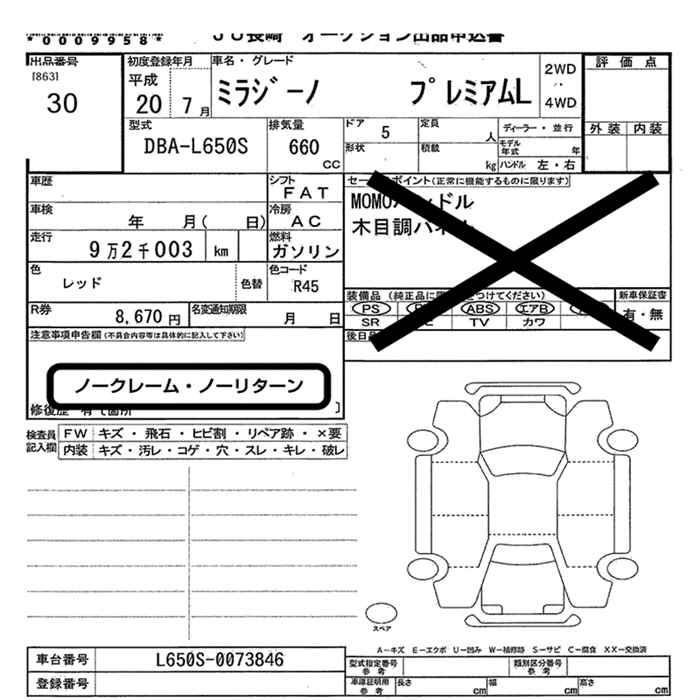 *0009958*
JU長崎 オークション出品申込書
出品番号 初度登録年月 車名・グレード 2WD 評価点
[863] 平成
30 20 7月 ミラジーノ プレミアムL 4WD
型式 排気量 ドア 5 定員 人 ディーラー・並行 外装 内装
DBA-L650S 660 CC 形状 積載 kg モデル年式 年 ハンドル 左・右
車歴 シフト FAT セールスポイント(正常に機能するものに限ります)
車検 年 月( 日) 冷房 AC MOMOハンドル
走行 9万2千003 km 燃料 ガソリン 木目調パネル
色 レッド 色替 色コード R45
装備品(純正品に せつけてください) 新車保証書
R券 8,670円 名変通知期限 月 日 PS ABS エアB 有・無
SR TV カワ
注意事項申告欄(不具合内容等は具体的に記入して下さい) 後日品
ノークレーム・ノーリターン
修復歴 有で箇所
検査員 FW キズ・飛石・ヒビ割・リペア跡・×要
記入欄 内装 キズ・汚レ・コゲ・穴・スレ・キレ・破レ
スペア
A-キズ E-エクボ U-凹み W-補修跡 S-サビ C-腐食 XX-交換済
車台番号 L650S-0073846 型式指定番号参考 類別区分番号参考
登録番号 車庫証明用参考 長さ cm 幅 cm 高さ cm